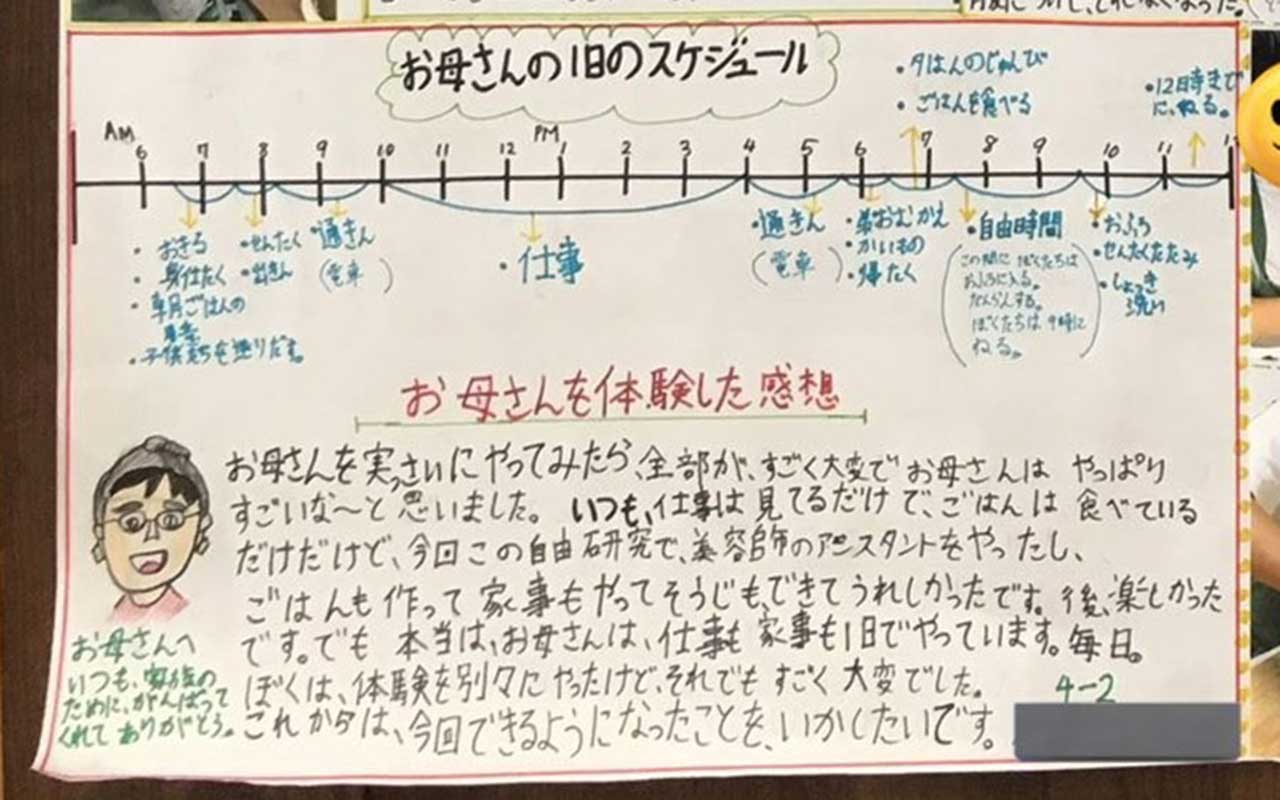 お母さんの1日のスケジュール
・夕はんのじゅんび
・ごはんを食べる
・12時まで
に、ねる。
AM
PM
6 7 8 9 10 11 12 1 2 3 4 5 6 7 8 9 10 11
・おきる
・身仕たく
・朝ごはんの
・子供たちを送りだす。
・せんたく
・出きん
・通きん
(電車)
・仕事
・通きん
(電車)
・弟おむかえ
・かいもの
・帰たく
・自由時間
(この間に ぼくたちは
おふろに入る。
だんらんする。
ぼくたちは 9時に
ねる。)
・おふろ
・せんたくたたみ
・しょっき
洗い
お母さんを体験した感想
お母さんを実っさいにやってみたら、全部が、すごく大変でお母さんは やっぱり
すごいな〜と思いました。いつも、仕事は見てるだけで、ごはんは 食べている
だけだけど、今回この自由研究で、美容師のアシスタントをやったし、
ごはんも作って家事もやってそうじも、できてうれしかったです。後、楽しかった
です。でも 本当は、お母さんは、仕事も家事も1日でやっています。毎日。
ぼくは、体験を別々にやったけど、それでもすごく大変でした。
これから夕は、今回できるようになったことを、いかしたいです。
お母さんへ
いつも、家族の
ために、がんばって
くれてありがとう。
4-2